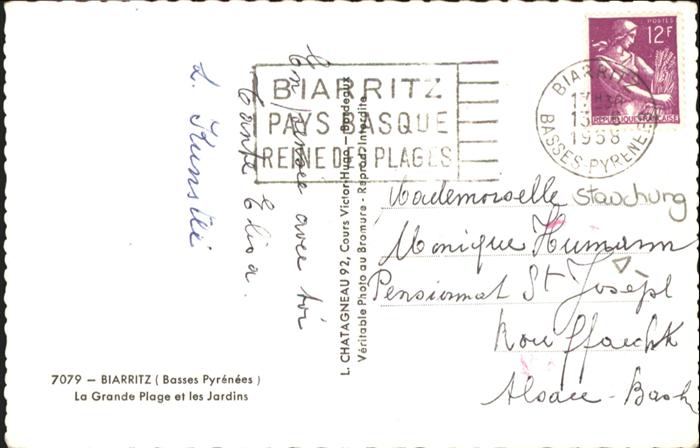 POSTES
12F
REPUBLIQUE FRANÇAISE
BIARRITZ
1958
BASSES-PYRENEES
BIARRITZ
PAYS BASQUE
REINE DES PLAGES
En pensée avec toi
tante Elisa.
L. CHATAGNEAU 92, Cours Victor-Hugo - Bordeaux
Véritable Photo au Bromure - Reprod. Interdite
Mademoiselle
Stauchung
Monique Humann
Pensionnat St Joseph
Rouffach
Alsace-
7079 - BIARRITZ (Basses Pyrénées)
La Grande Plage et les Jardins